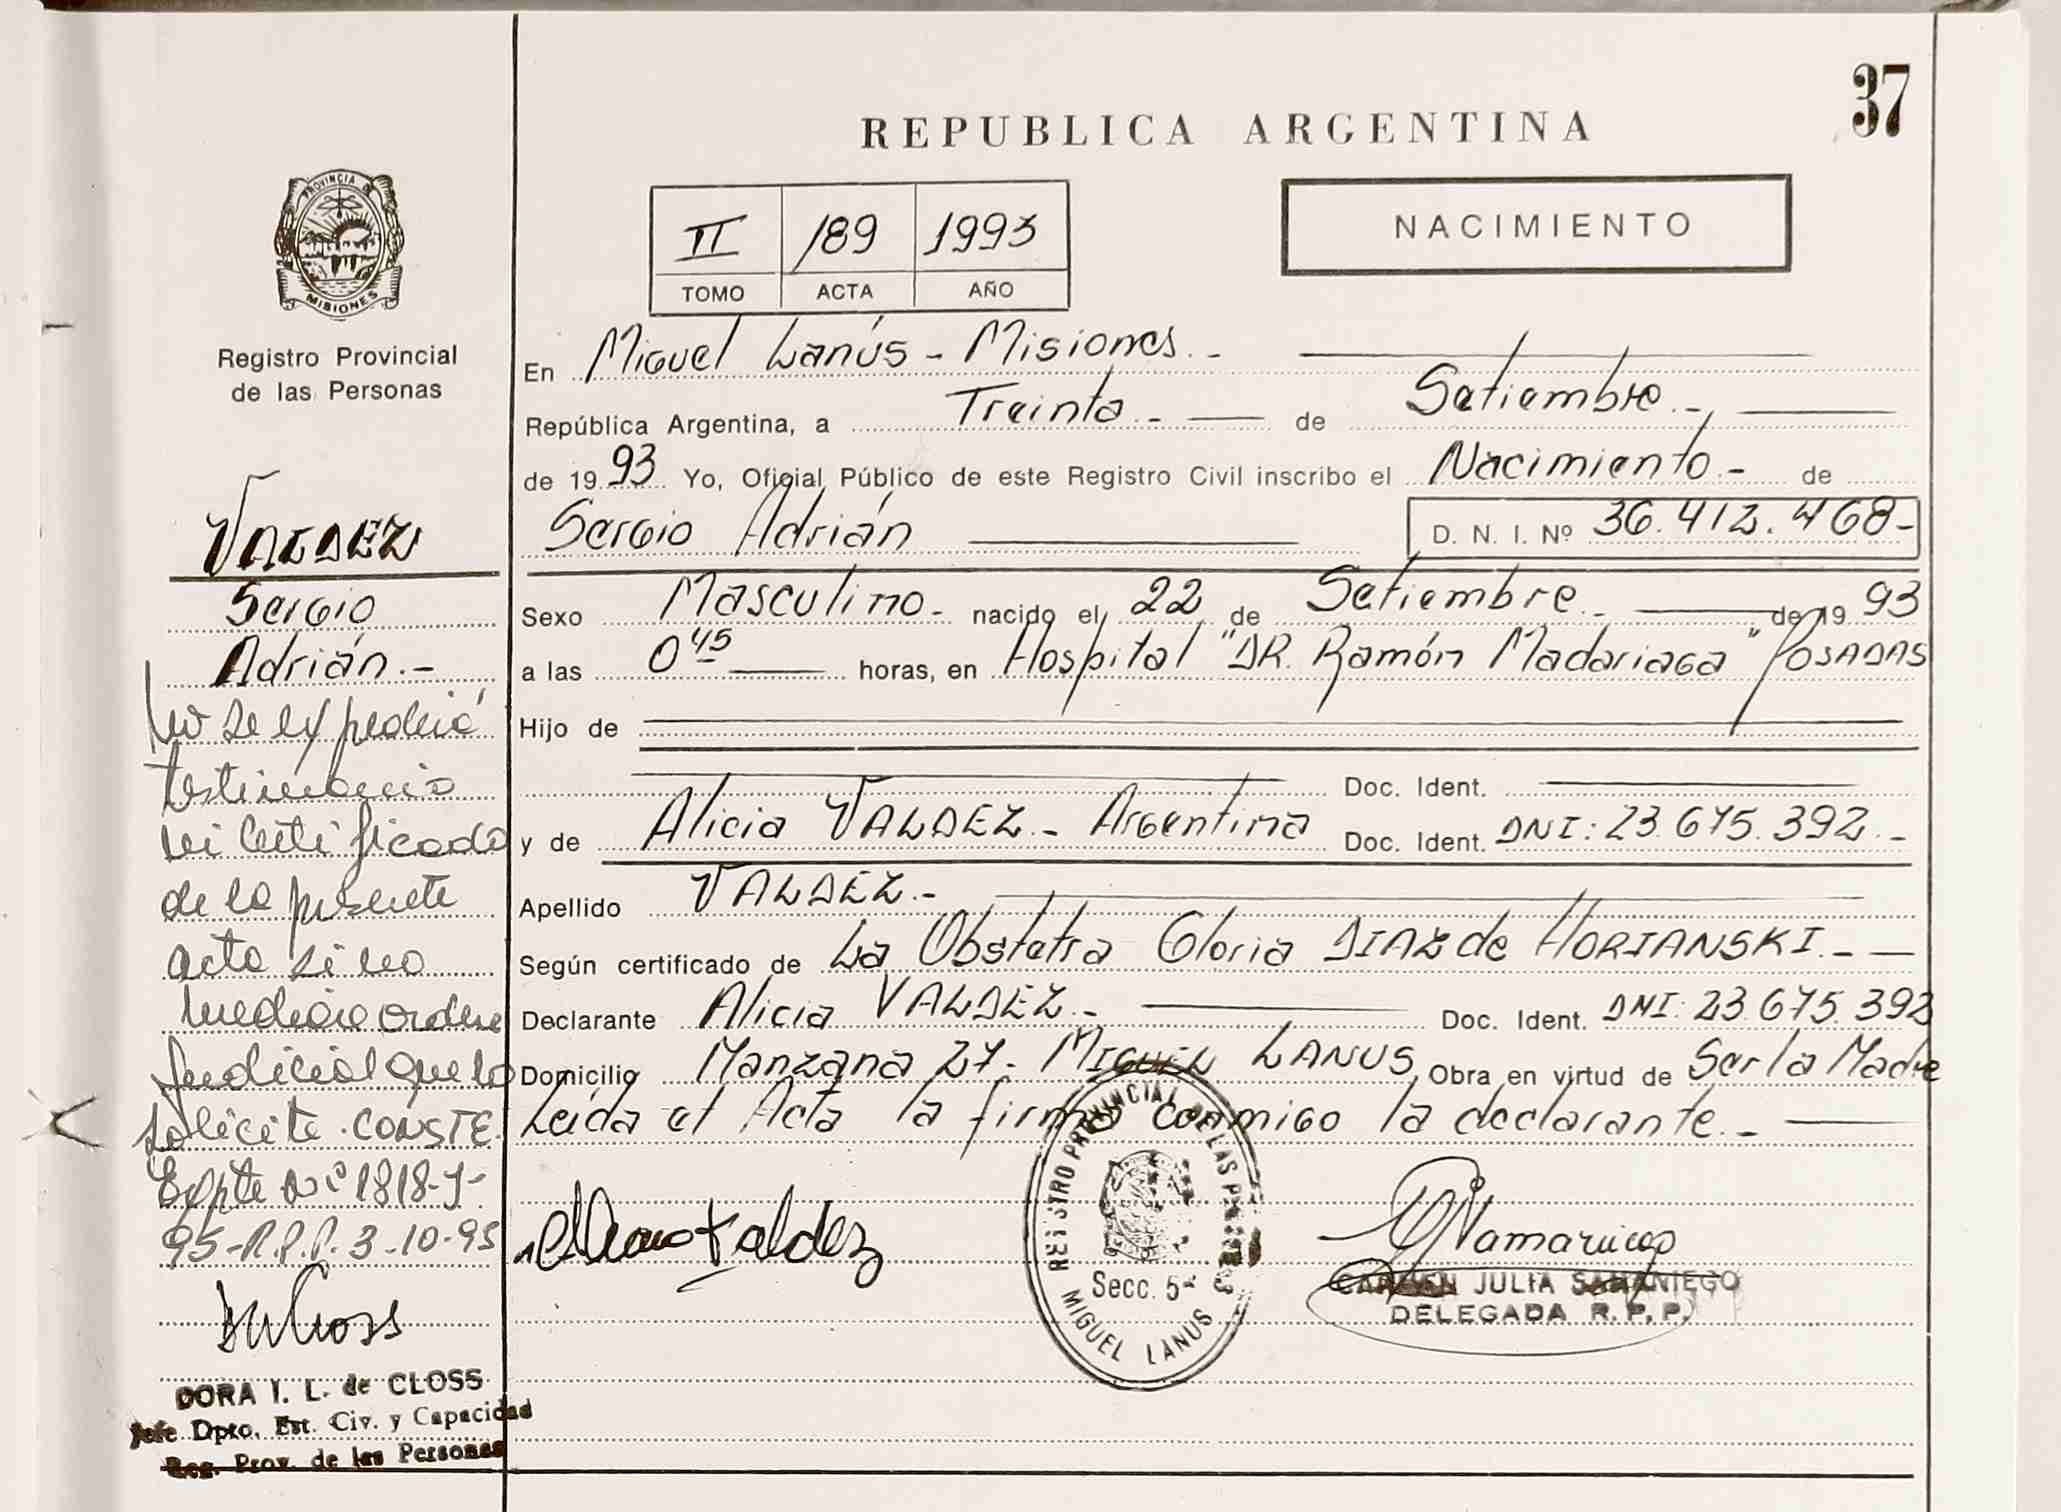 37
REPUBLICA ARGENTINA
NACIMIENTO
II 189 1993
TOMO ACTA AÑO
PROVINCIA DE
MISIONES
Registro Provincial
de las Personas
VALDEZ
Sergio
Adrián.-
No se expedirá
testimonio
ni certificado
de la presente
acta si no
media orden
judicial que lo
solicite. CONSTE.
Expte Nº 1818-J-
95-R.P.P. 3-10-95
DORA I. L. de CLOSS
Jefe Dpto. Est. Civ. y Capacidad
Reg. Prov. de las Personas
En Miguel Lanús - Misiones.-
República Argentina, a Treinta.- de Setiembre.-
de 1993 Yo, Oficial Público de este Registro Civil inscribo el Nacimiento.- de
Sergio Adrián D. N. I. Nº 36.412.468-
Sexo Masculino.- nacido el 22 de Setiembre.- de 19 93
a las 0 45 horas, en Hospital "DR. Ramón Madariaga" POSADAS
Hijo de
Doc. Ident.
y de Alicia VALDEZ.- Argentina Doc. Ident. DNI: 23.675.392.-
Apellido VALDEZ.-
Según certificado de La Obstetra Gloria DIAZ de HORIANSKI.-
Declarante Alicia VALDEZ.- Doc. Ident. DNI: 23.675.392
Domicilio Manzana 27- MIGUEL LANUS Obra en virtud de Ser la Madre
Leída el Acta la firma conmigo la declarante.-
REGISTRO PROVINCIAL DE LAS PERSONAS
Secc. 5ª
MIGUEL LANUS
CARMEN JULIA SAMANIEGO
DELEGADA R.P.P.